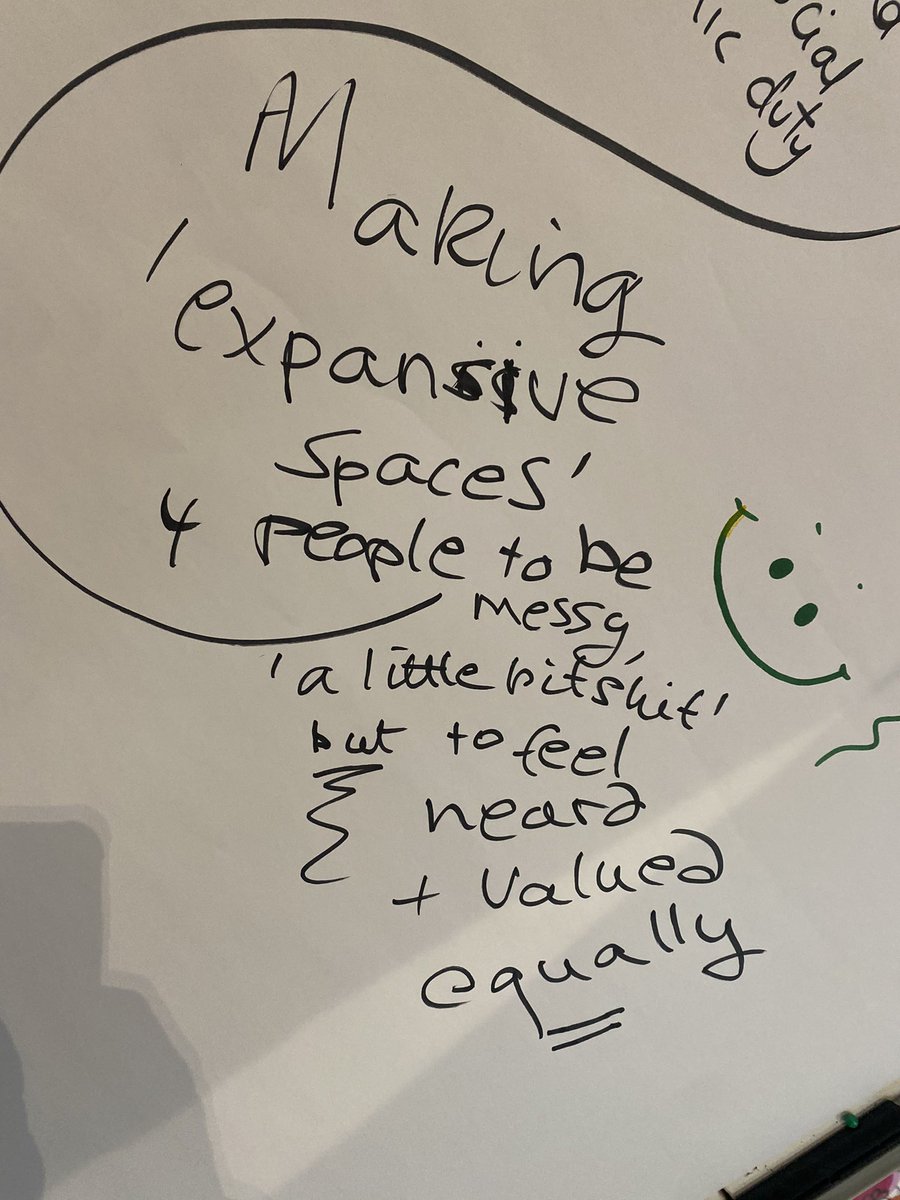 cial
ic duty
Making
'expansive
spaces'
4 people to be
messy,
'a little bit shit'
but to feel
heard
+ valued
equally